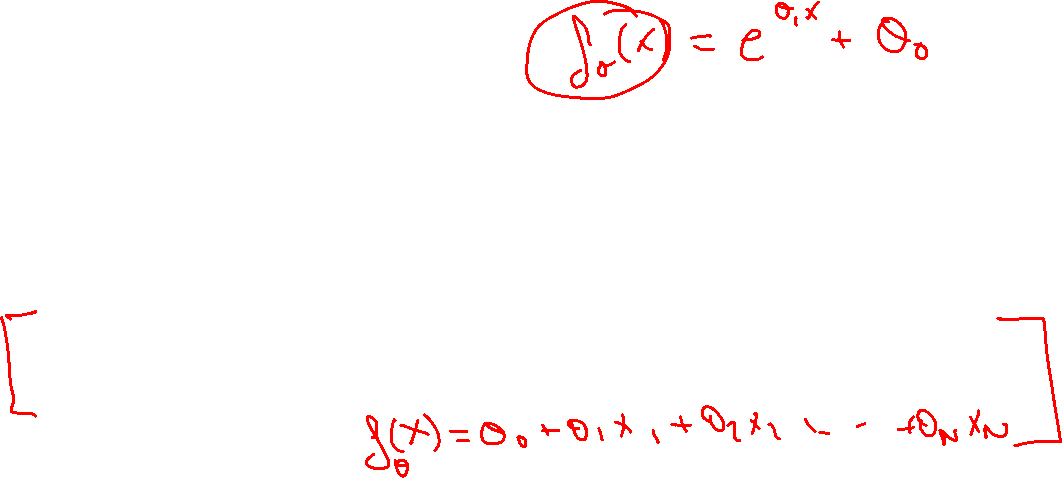 f_θ(x) = e^{θ₁x} + θ₀
f_θ(x) = θ₀ + θ₁x₁ + θ₂x₂ . . . + θ_N x_N